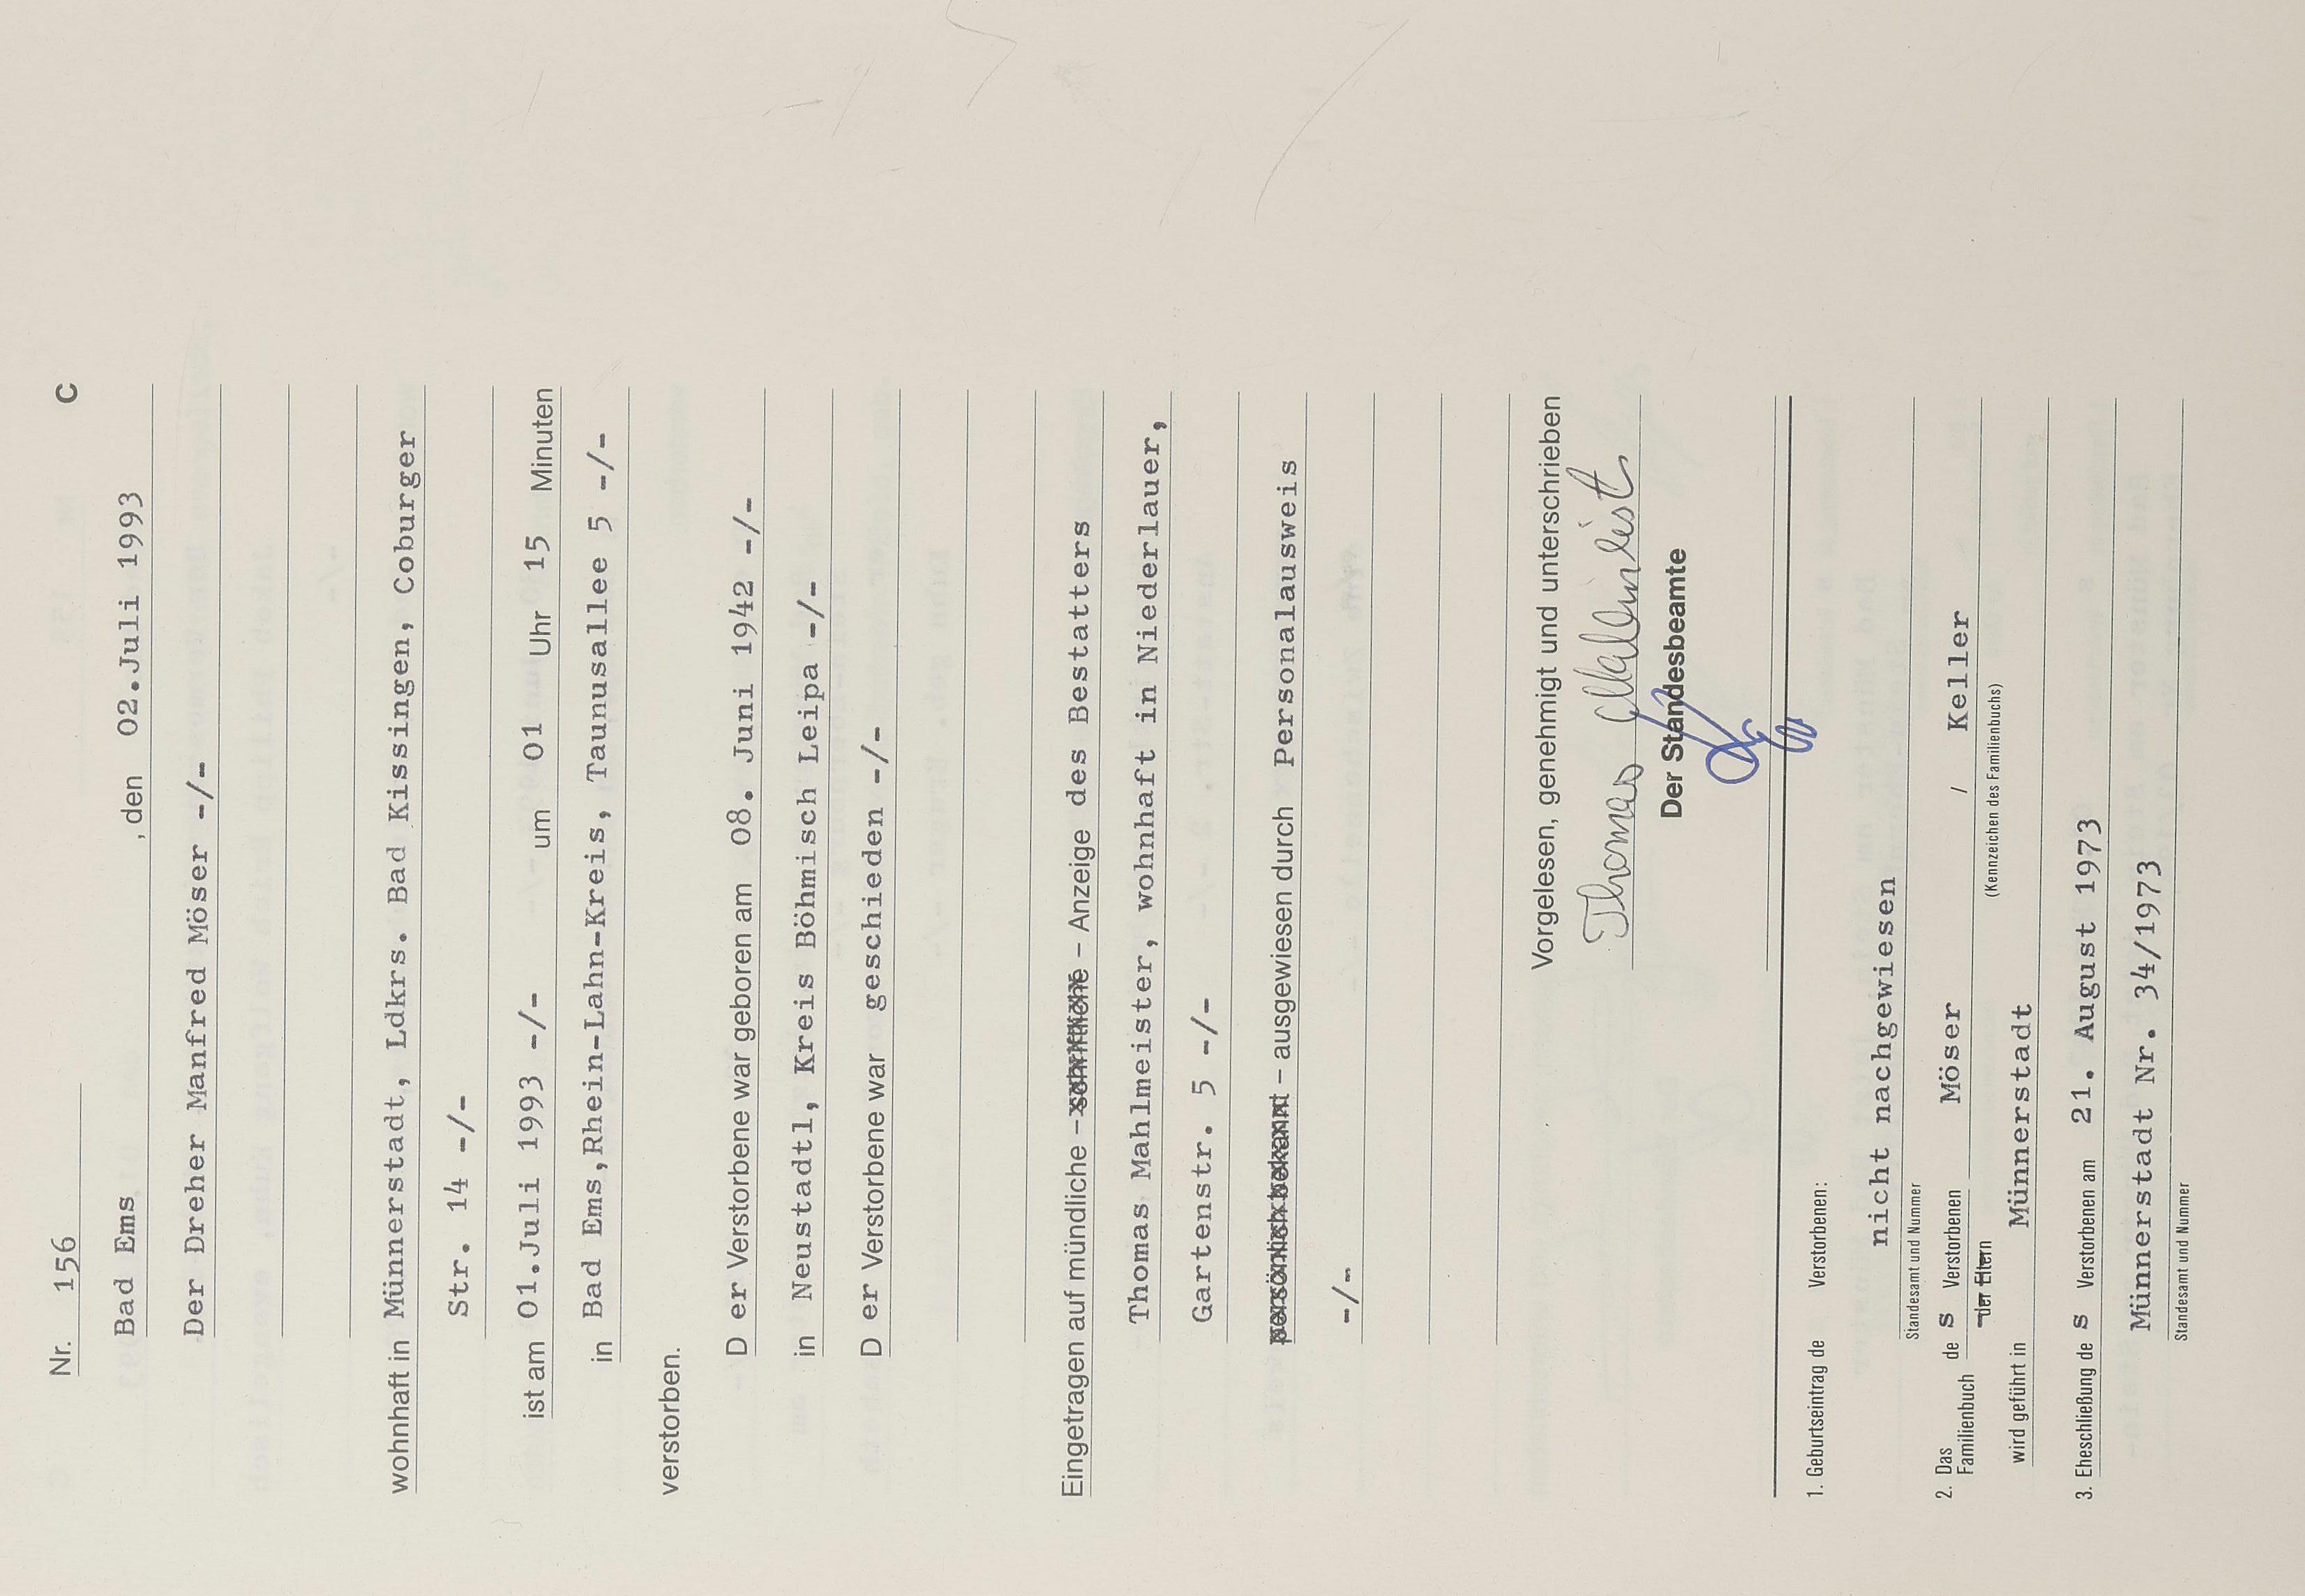 Nr. 156 C
Bad Ems , den 02.Juli 1993
Der Dreher Manfred Möser -/-
wohnhaft in Münnerstadt, Ldkrs. Bad Kissingen, Coburger
Str. 14 -/-
ist am 01.Juli 1993 -/- um 01 Uhr 15 Minuten
in Bad Ems,Rhein-Lahn-Kreis, Taunusallee 5 -/-
verstorben.
D er Verstorbene war geboren am 08. Juni 1942 -/-
in Neustadtl, Kreis Böhmisch Leipa -/-
D er Verstorbene war geschieden -/-
Eingetragen auf mündliche – schriftliche – Anzeige des Bestatters
Thomas Mahlmeister, wohnhaft in Niederlauer,
Gartenstr. 5 -/-
persönlich bekannt – ausgewiesen durch Personalausweis
-/-
Vorgelesen, genehmigt und unterschrieben
Thomas Mahlmeister
Der Standesbeamte
1. Geburtseintrag de Verstorbenen:
nicht nachgewiesen
Standesamt und Nummer
2. Das Familienbuch de s Verstorbenen Möser / Keller
der Eltern (Kennzeichen des Familienbuchs)
wird geführt in Münnerstadt
3. Eheschließung de s Verstorbenen am 21. August 1973
Münnerstadt Nr. 34/1973
Standesamt und Nummer